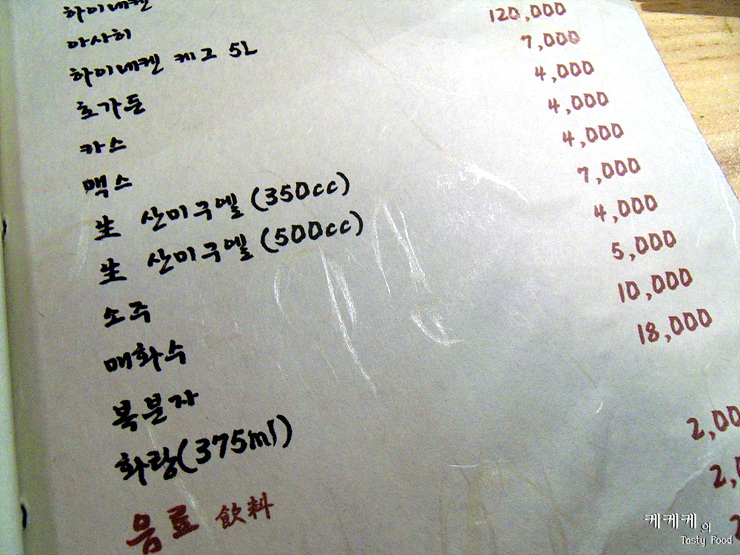 하이네켄
아사히
하이네켄 케그 5L 120,000
호가든 7,000
카스 4,000
맥스 4,000
生 산미구엘 (350cc) 4,000
生 산미구엘 (500cc) 7,000
소주 4,000
매화수 5,000
복분자 10,000
화랑(375ml) 18,000
음료 飮料
케케케의
Tasty Food